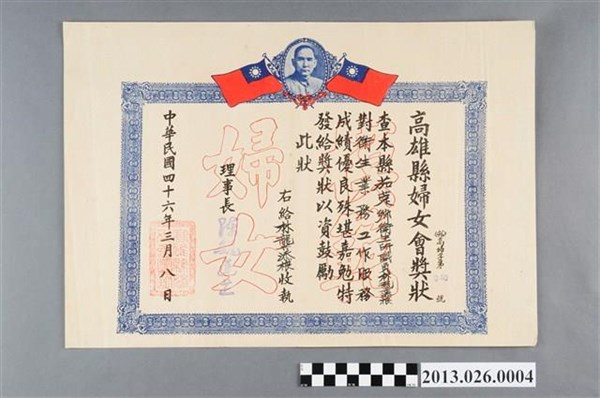 高雄縣婦女會獎狀
號
查本縣茄定鄉衛生所職員林
對衛生業務工作服務
成績優良殊堪嘉勉特
發給獎狀以資鼓勵
此狀
右給林龍 收執
理事長
中華民國四十六年三月八日
婦女
2013.026.0004